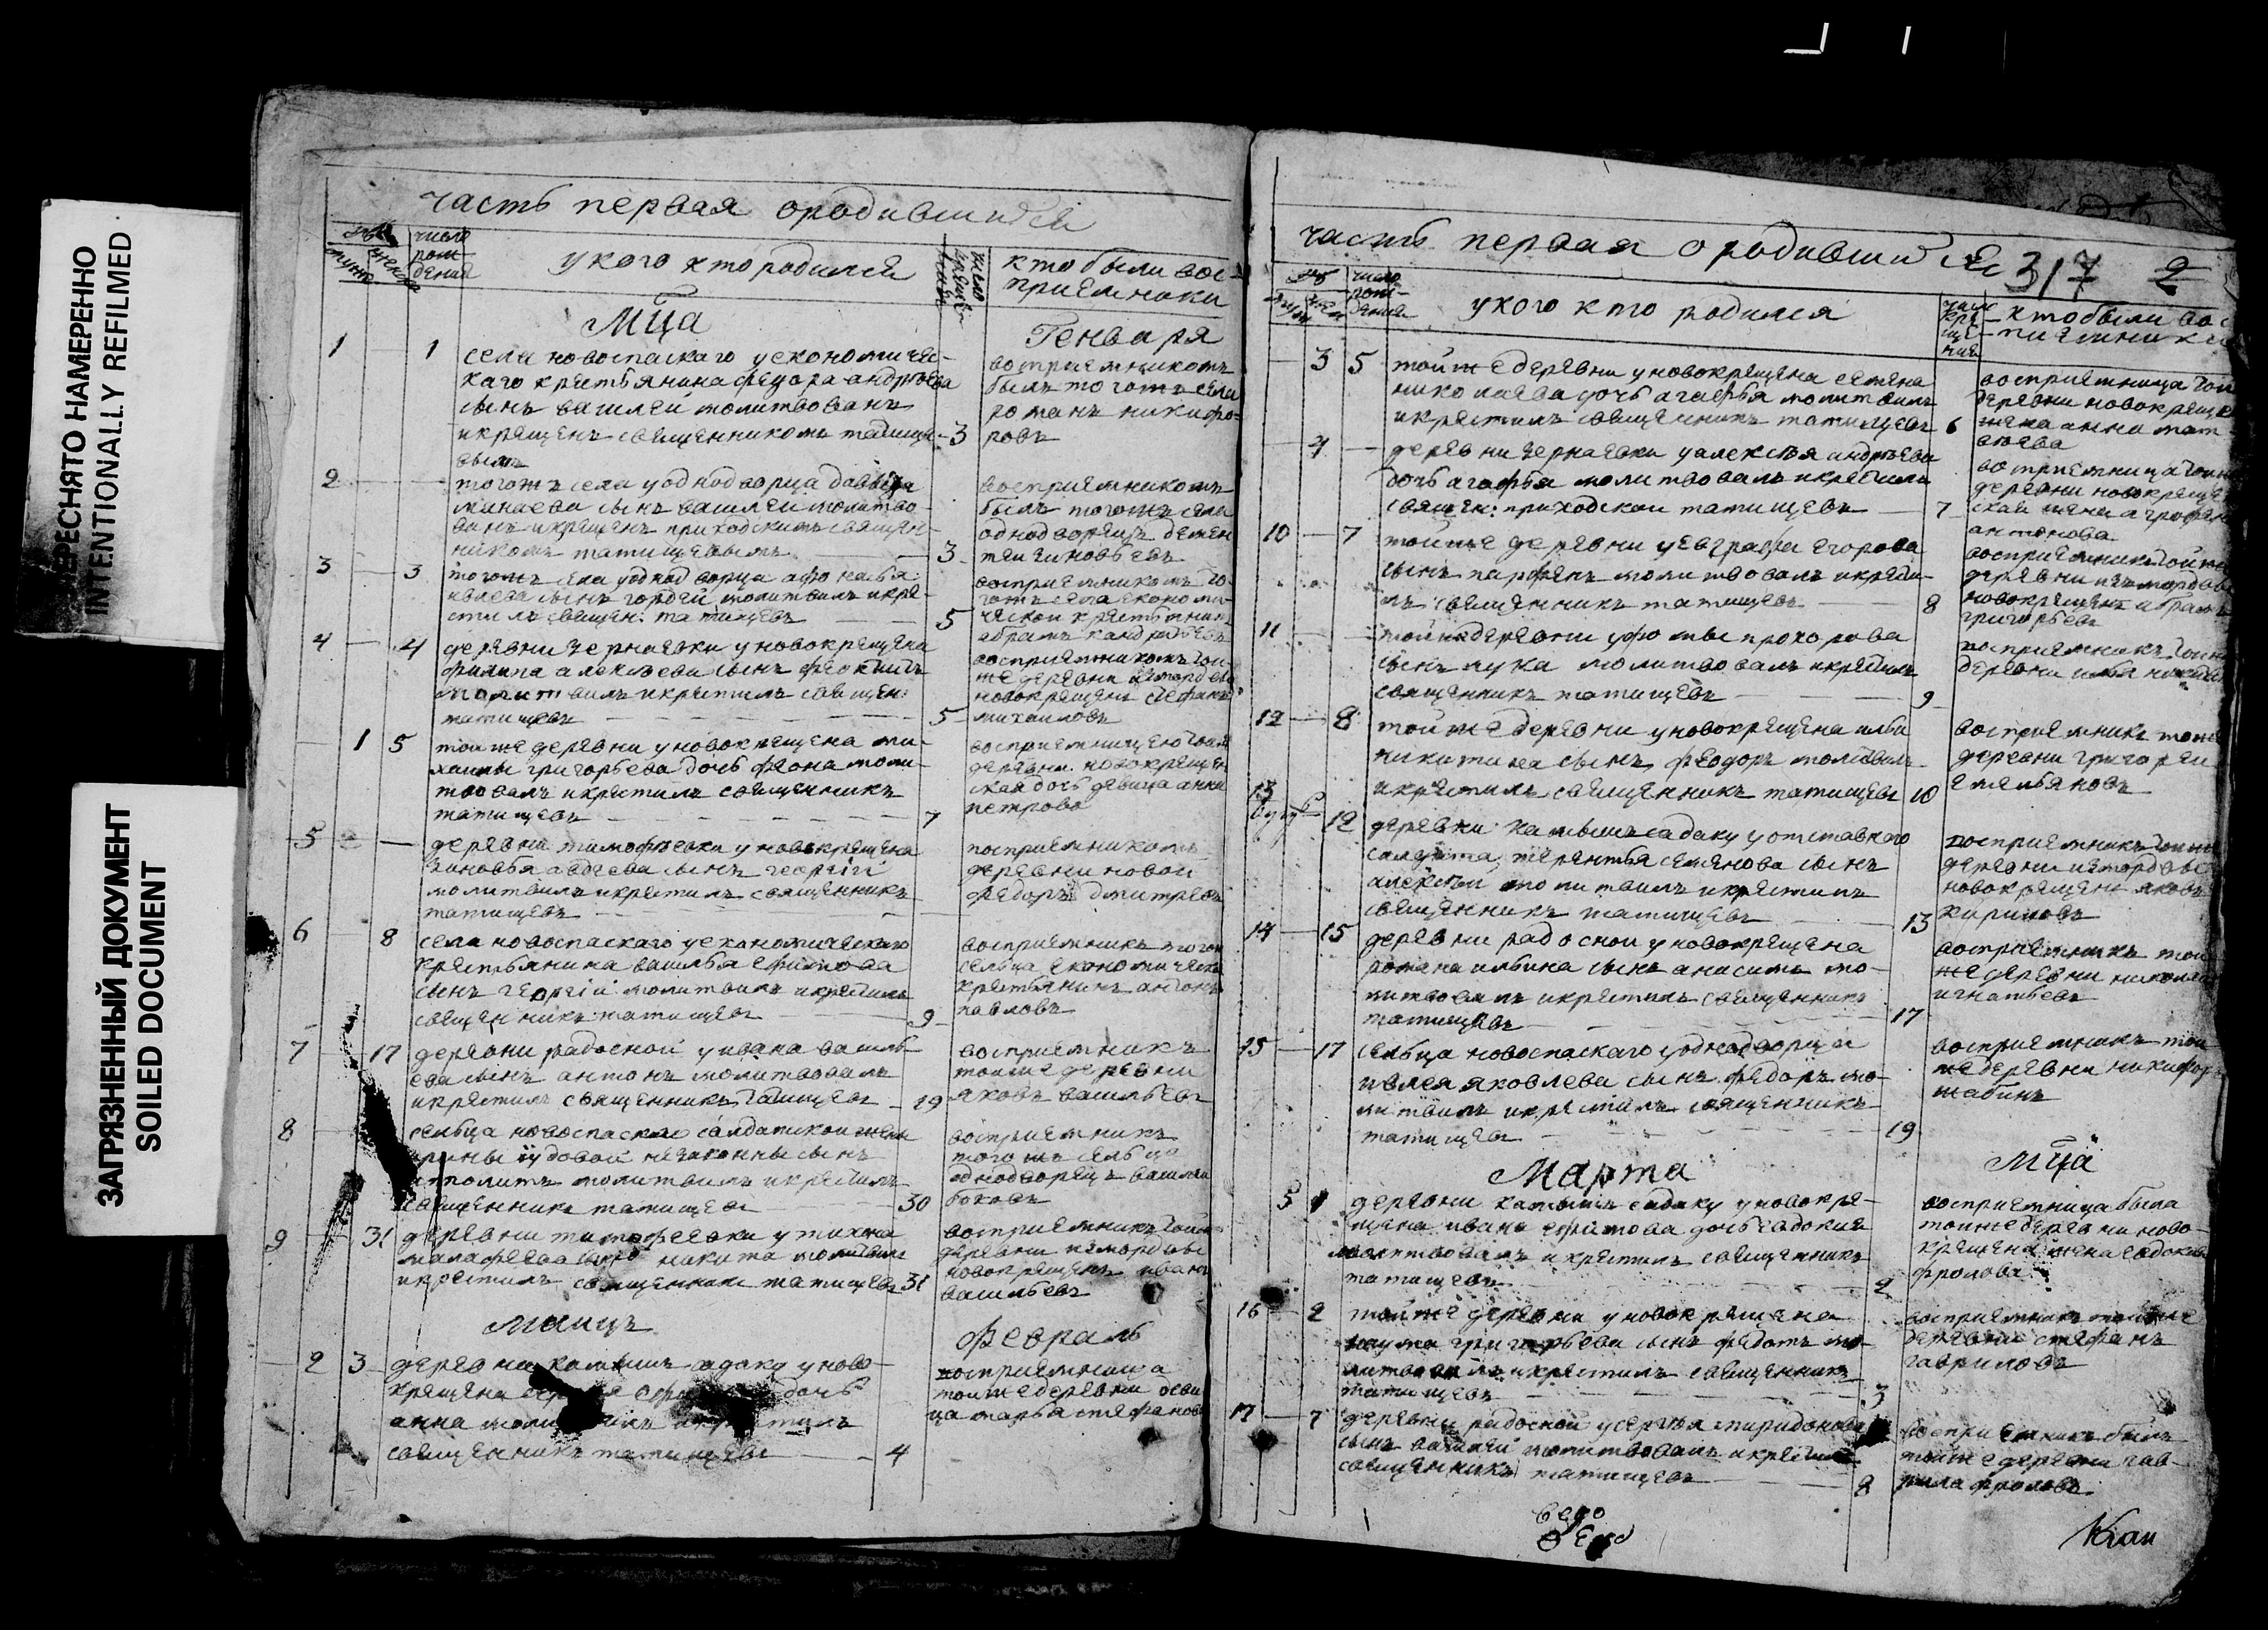 ПЕРЕСНЯТО НАМЕРЕННО
INTENTIONALLY REFILMED
ЗАГРЯЗНЕННЫЙ ДОКУМЕНТ
SOILED DOCUMENT
часть первая ородившихся
число рож дения
укого кто родился
кто были вос-
приемники
Мца
Генваря
1 1 села новоспаскаго уекономичес-
каго крестьянина федора андреева
сынъ василей молитвованъ
икрещенъ священникомъ татище- 3
вымъ
восприемникомъ
былъ тогожъ села
романъ никифо-
ровъ
2 тогожъ села уоднодворца давыда
минаева сынъ василей молитво-
ванъ икрещенъ приходскимъ священ-
никомъ татищевымъ 3
восприемникомъ
былъ тогожъ села
однодворецъ демен
тей зиновьевъ
3 3 тогожъ села уоднодворца афонасья
сынъ гордей молитвилъ икре-
стилъ священ: татищевъ 5
восприемникомъ то-
гожъ села економи-
ческой крестьянинъ
абрамъ
4 4 деревни чернаевки уновокрещена
филипа алексеева сынъ
молитвилъ икрестилъ священ:
татищевъ 5
восприемникомъ той
же деревни измордвы
новокрещенъ стефанъ
михаиловъ
1 5 тойже деревни уновокрещена ми-
хаилы григорьева дочь феона моли-
твовалъ икрестилъ священникъ
татищевъ 7
восприемницею
деревни новокрещен
ская дочь девица анна
петрова
5 деревни тимофеевки уновокрещена
зиновья авдеева сынъ георгий
молитвилъ икрестилъ священникъ
татищевъ
восприемникомъ
деревни новой
федоръ дмитревъ
6 8 села новоспаскаго уекономическаго
крестьянина василья ефимова
сынъ георгий молитвилъ икрестилъ
священникъ татищевъ 9
восприемникъ тогож
сельца економическ
крестьянинъ антонъ
павловъ
7 17 деревни радосной уивана василь-
ева сынъ антонъ молитвовалъ
икрестилъ священникъ татищевъ 19
восприемникъ
тойже деревни
яковъ васильевъ
8 сельца новоспаскаго салдатской жены
вдовой незаконны сынъ
иполитъ молитвилъ икрестилъ
священникъ татищевъ 30
восприемникъ
тогожъ сельца
однодворецъ василей
боковъ
9 31 деревни тимофеевки утихона
малафеева сынъ никита молитвилъ
икрестилъ священникъ татищевъ 31
восприемникъ той
деревни измордвы
новокрещенъ иванъ
васильевъ
Месяцъ
Февраль
2 3 деревни камышъ садаку уново-
крещена дочь
анна
священникъ татищевъ 4
восприемница
тойже деревни деви
ца марья стефанова
часть первая ородившихся 317 2
число рож- дения
укого кто родился
число кре- ще- ния
кто были вос
приемники
3 5 тойже деревни уновокрещена семена
николаева дочь агафья молитвилъ
икрестилъ священникъ татищевъ 6
восприемница той
деревни новокрещен
жена анна мат-
веева
4 деревни чернаевки уалексея андреева
дочь агафья молитвовалъ икрестилъ
священ: приходской татищевъ 7
восприемница той
деревни новокрещен
ская жена аграфена
антонова
10 7 тойже деревни уевграфа егорова
сынъ парфенъ молитвовалъ икрести-
лъ священникъ татищевъ 8
восприемникъ той же
деревни измордвы
новокрещенъ абрамъ
григорьевъ
11 тойже деревни уфомы прохорова
сынъ лука молитвовалъ икрестилъ
священникъ татищевъ 9
восприемникъ той
деревни илья никитинъ
12 8 тойже деревни уновокрещена ильи
никитина сынъ феодоръ молитвилъ
икрестилъ священникъ татищевъ 10
восприемникъ тойже
деревни григорей
емельяновъ
13
12 деревни камышъ садаку уотставного
салдата терентья семенова сынъ
алексей молитвилъ икрестилъ
священникъ татищевъ 13
восприемникъ той же
деревни измордвы
новокрещенъ яковъ
кириловъ
14 15 деревни радосной уновокрещена
романа ильина сынъ анисимъ мо-
литвовалъ икрестилъ священникъ
татищевъ 17
восприемникъ той
же деревни николай
игнатьевъ
15 17 сельца новоспаскаго уоднодворца
ивлея яковлева сынъ федоръ мо-
литвилъ икрестилъ священникъ
татищевъ 19
восприемникъ той
же деревни никифоръ
шабинъ
Марта
Мца
5 1 деревни камышъ садаку уновокре-
щена ивана ефимова дочь евдокия
молитвовалъ икрестилъ священникъ
татищевъ 2
восприемница была
тойже деревни ново-
крещена жена евдокия
фролова
16 2 тойже деревни уновокрещена
наума григорьева сынъ федотъ мо-
литвовалъ икрестилъ священникъ
татищевъ 3
восприемникъ тойже
деревни стефанъ
гавриловъ
17 7 деревни радосной усергея спиридонова
сынъ василей молитвовалъ икрестилъ
священникъ татищевъ 8
восприемникъ былъ
тойже деревни гав-
рила фроловъ